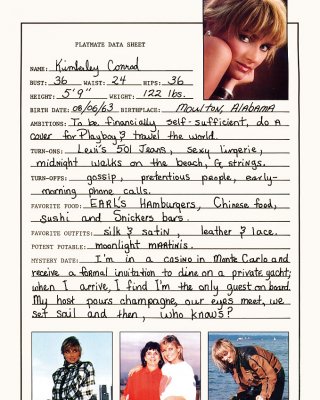 PLAYMATE DATA SHEET
NAME: Kimberley Conrad
BUST: 36 WAIST: 24 HIPS: 36
HEIGHT: 5'9" WEIGHT: 122 lbs.
BIRTH DATE: 08/06/63 BIRTHPLACE: Moulton, Alabama
AMBITIONS: To be financially self-sufficient, do a
cover for Playboy & travel the world.
TURN-ONS: Levi's 501 Jeans, sexy lingerie,
midnight walks on the beach, G strings.
TURN-OFFS: gossip, pretentious people, early-
morning phone calls.
FAVORITE FOOD: EARL's Hamburgers, Chinese food,
sushi and Snickers bars.
FAVORITE OUTFITS: silk & satin, leather & lace.
POTENT POTABLE: moonlight martinis.
MYSTERY DATE: I'm in a casino in Monte Carlo and
receive a formal invitation to dine on a private yacht;
when I arrive, I find I'm the only guest on board.
My host pours champagne, our eyes meet, we
set sail and then, who knows?